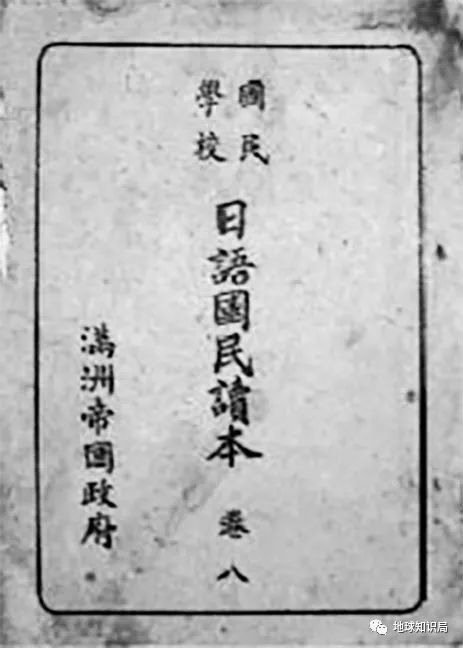 國民
學校
日語國民讀本 卷八
滿洲帝國政府
地球知识局